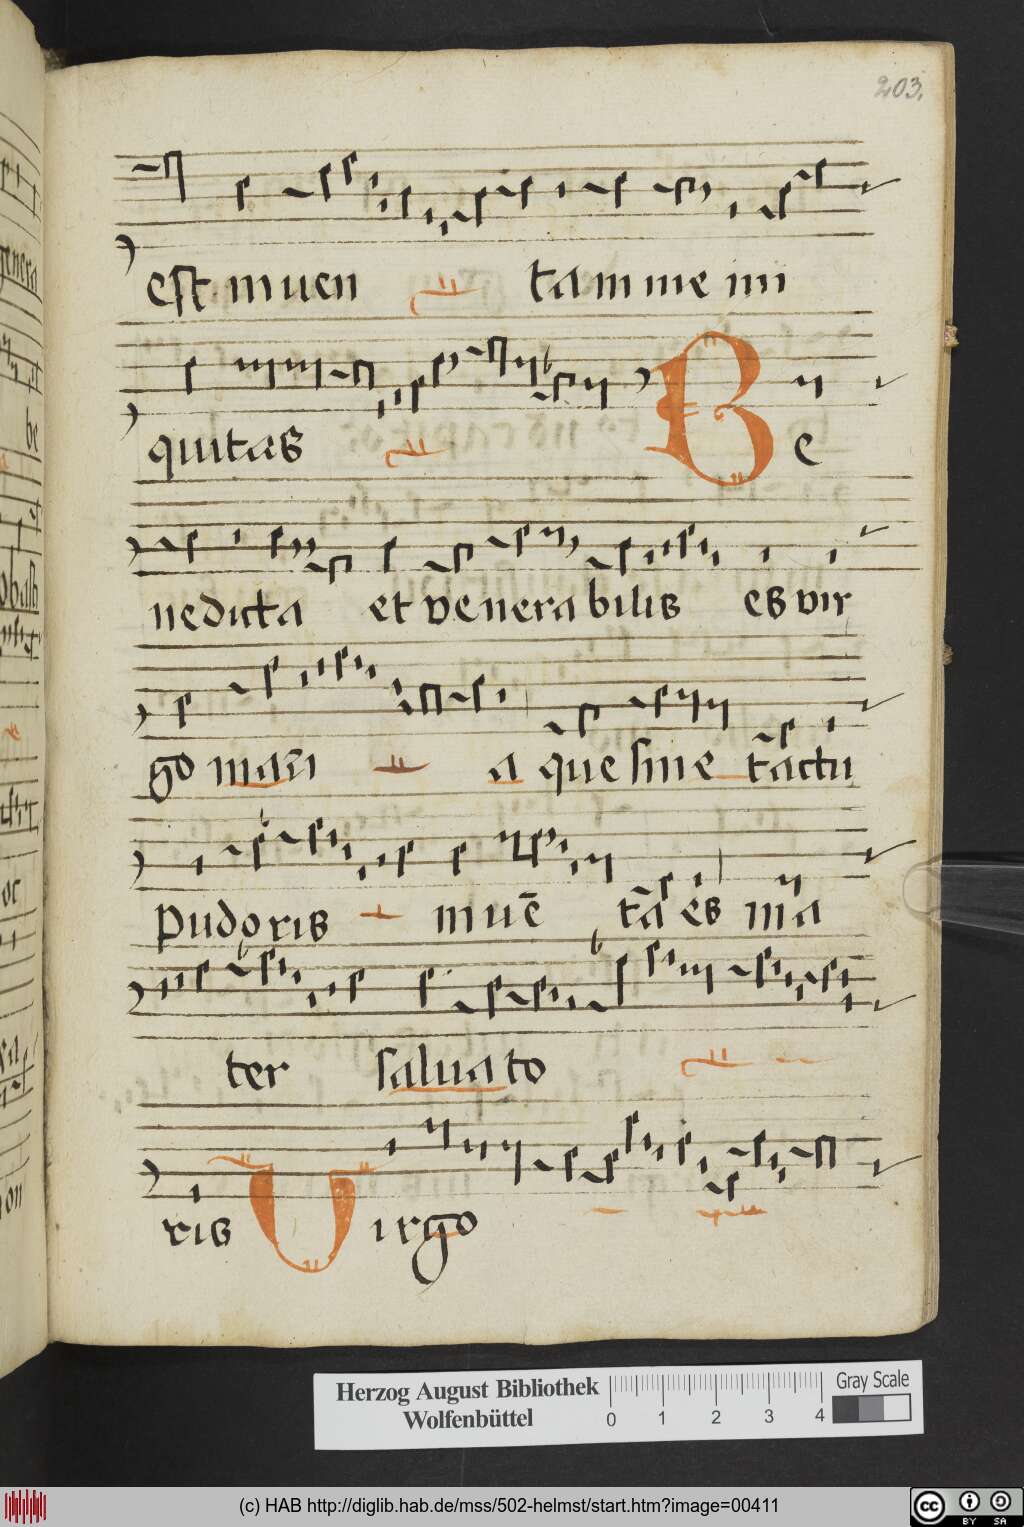 203.
est inuen ta in me ini
quitas Be
nedicta et venerabilis es vir
go mari a que sine tactu
pudoris inuē ta es ma
ter saluato
ris Virgo
genera
be
Herzog August Bibliothek
Wolfenbüttel
0 1 2 3 4
Gray Scale
(c) HAB http://diglib.hab.de/mss/502-helmst/start.htm?image=00411
cc BY SA